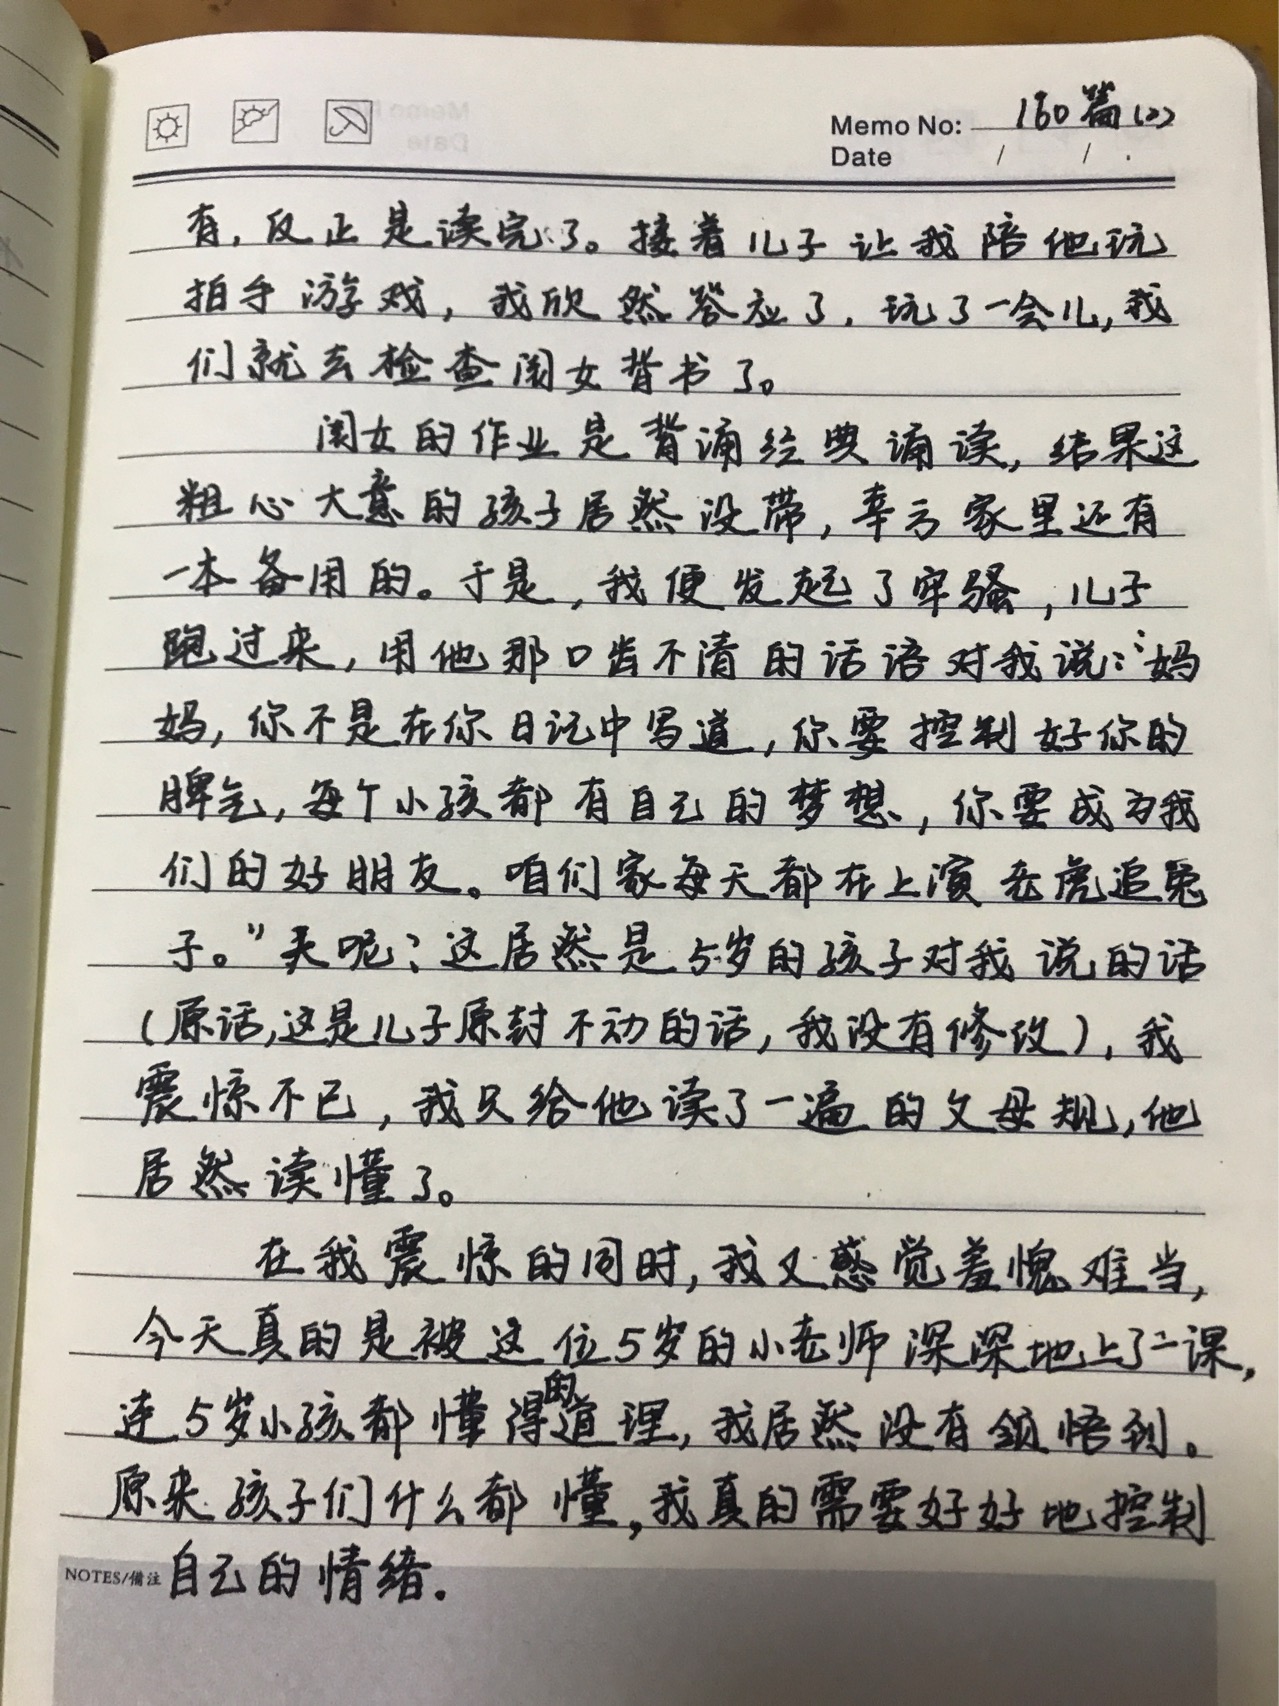 Memo No: 160篇(2)
Date / / .
有,反正是读完了。接着儿子让我陪他玩
拍手游戏,我欣然答应了,玩了一会儿,我
们就去检查闺女背书了。
闺女的作业是背诵经典诵读,结果这
粗心大意的孩子居然没带,幸亏家里还有
一本备用的。于是,我便发起了牢骚,儿子
跑过来,用他那口齿不清的话语对我说:“妈
妈,你不是在你日记中写道,你要控制好你的
脾气,每个小孩都有自己的梦想,你要成为我
们的好朋友。咱们家每天都在上演老虎追兔
子。”天呢!这居然是5岁的孩子对我说的话
(原话,这是儿子原封不动的话,我没有修改),我
震惊不已,我只给他读了一遍的父母规,他
居然读懂了。
在我震惊的同时,我又感觉羞愧难当,
今天真的是被这位5岁的小老师深深地上了一课,
连5岁小孩都懂得的道理,我居然没有领悟到。
原来孩子们什么都懂,我真的需要好好地控制
NOTES/備注 自己的情绪.